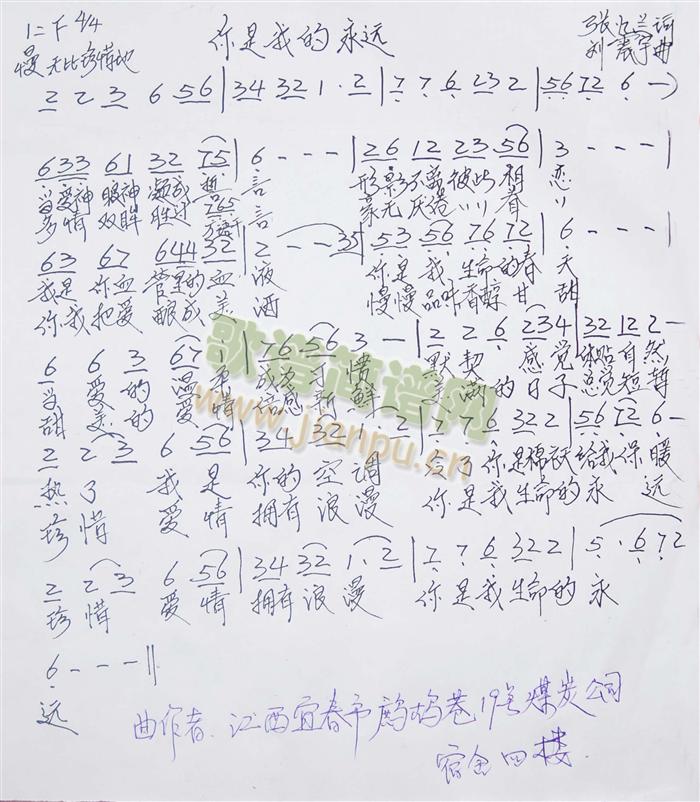 1=F 4/4 你是我的永远 张 兰词
慢 无比珍惜地 刘 曲
2 2 3 6 56 | 34 32 1 · 2 | 7 7 6 23 2 | 56 72 6 - )
633 61 32 75 | 6 - - - | 26 12 23 56 | 3 - - - |
当爱神 眼神 凝成 言 形影不离彼此 相 恋
多情 双眸 胜过 765 言 毫无 厌倦 眷
63 67 644 32 | 2 - - 35 | 53 56 76 72 | 6 - - - |
我是 你血 管里的血 液 你是 我 生命的春 天
你我把爱 酿成 美 酒 慢慢品味香醇 甘 甜
6 6 3 67 | 76 56 3 - | 2 2 6 234 | 32 12 2 -
当 爱 的 温 成为 习 惯 默 契 感觉 体贴自然
甜 美 的 爱情 感 新 鲜 满 的 日子 总觉短暂
2 2 3 6 56 | 34 32 1 · 2 | 7 7 6 32 2 | 56 72 6 -
热了 我 是 你的 空 调 冷了 你是棉袄给我保 暖
珍惜 爱 情 拥有 浪 漫 你是我生命的永 远
2 2 3 6 56 | 34 32 1 · 2 | 7 7 6 32 2 | 5 · 6 72
珍惜 爱 情 拥有 浪 漫 你是我生命的 永
6 - - - ||
远
歌谱简谱网
www.jianpu.cn
曲作者: 江西宜春市鹧鸪巷19号煤炭公司
宿舍四楼